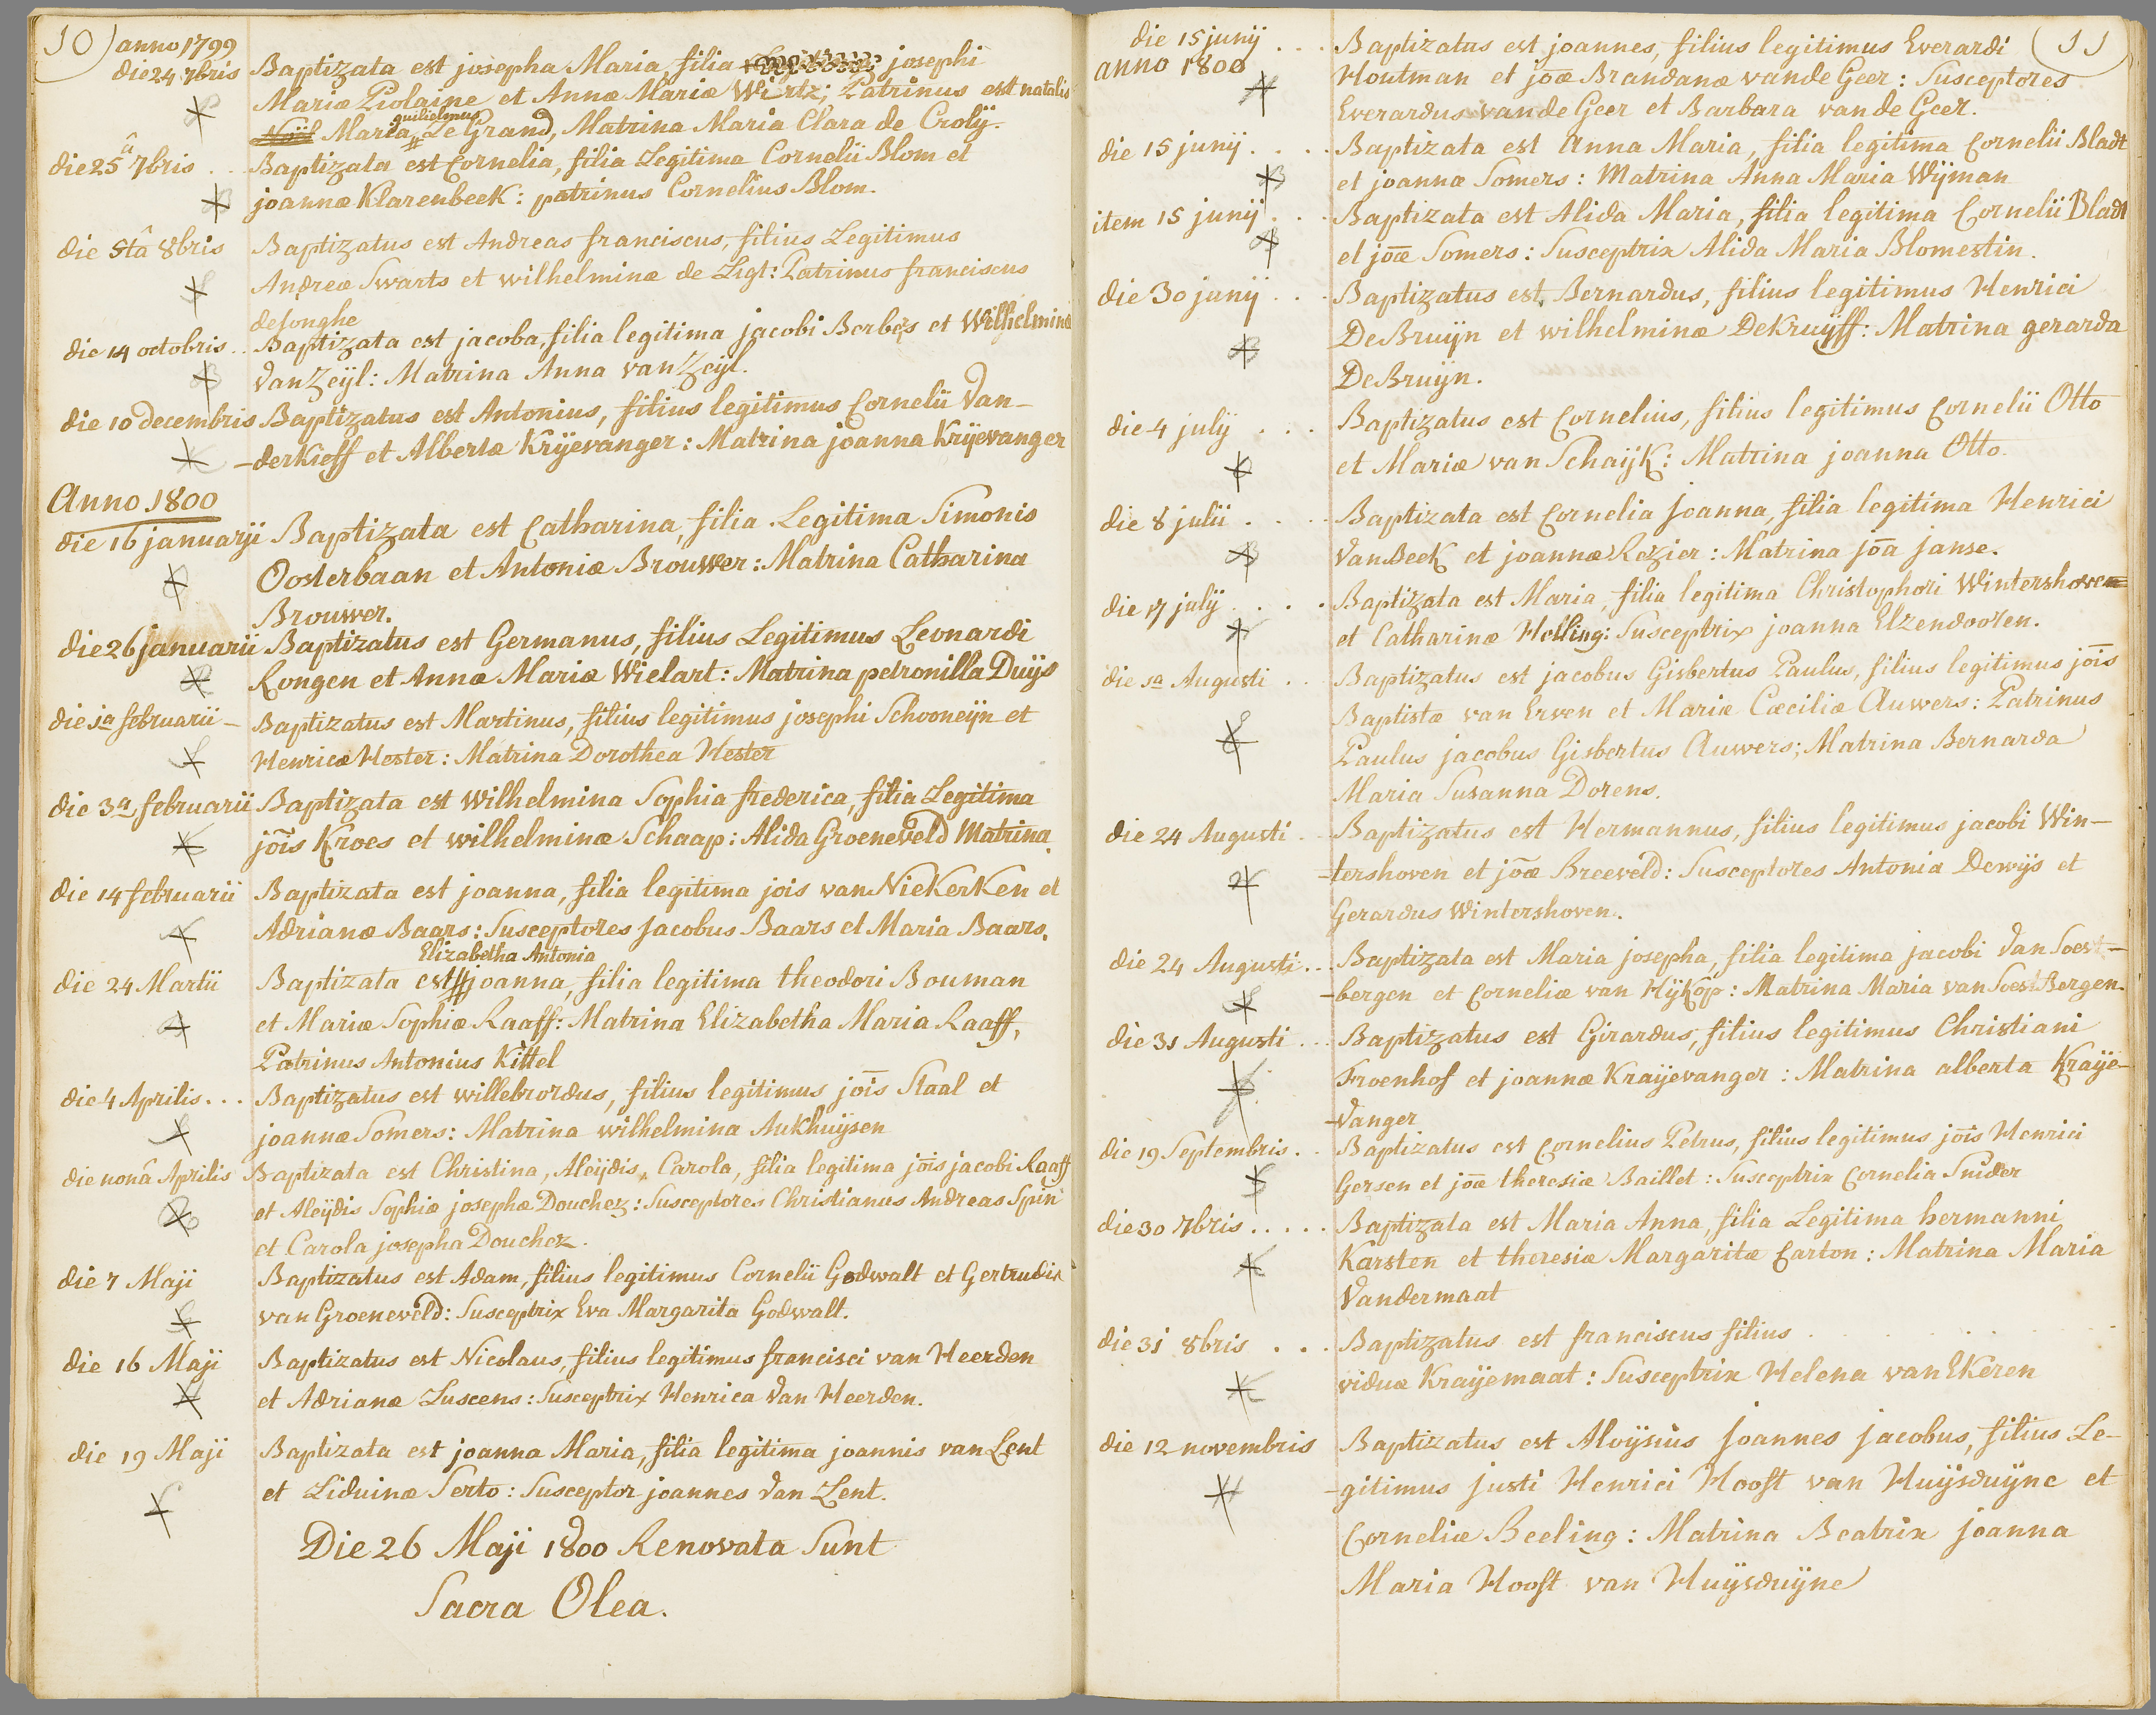 10) anno 1799
die 24 7bris Baptizata est josepha Maria filia josephi
Mariæ Piolaine et Annæ Mariæ Wirtz; Patrinus est natalis
guilielmus
Noël Maria Le Grand, Matrina Maria Clara de Crolÿ.
die 25â 7bris .. Baptizata est Cornelia, filia Legitima Cornelii Blom et
joannæ Klarenbeek: patrinus Cornelius Blom.
die 5tâ 8bris Baptizatus est Andreas franciscus, filius Legitimus
Andreæ Swarts et wilhelminæ de Ligt: Patrinus franciscus
deJonghe
die 14 octobris .. Baptizata est jacoba, filia legitima jacobi Berbers et Wilhelminæ
VanZeÿl: Matrina Anna van Zeÿl.
die 10 decembris Baptizatus est Antonius, filius legitimus Cornelii Van-
-derKieff et Albertæ Krÿevanger: Matrina joanna Krÿevanger
Anno 1800
die 16 januarii Baptizata est Catharina, filia Legitima Simonis
Oosterbaan et Antoniæ Brouwer: Matrina Catharina
Brouwer.
die 26 januarii Baptizatus est Germanus, filius Legitimus Leonardi
Rongen et Annæ Mariæ Wielart: Matrina petronilla Duÿs
die 1a februarii - Baptizatus est Martinus, filius legitimus josephi Schooneÿn et
Henricæ Hester: Matrina Dorothea Hester
die 3a februarii Baptizata est Wilhelmina Sophia frederica, filia Legitima
jōis Kroes et wilhelminæ Schaap: Alida Groeneveld Matrina.
die 14 februarii Baptizata est joanna, filia legitima jois van NieKerKen et
Adrianæ Baars: Susceptores jacobus Baars et Maria Baars.
Elizabetha Antonia
die 24 Martii Baptizata est joanna, filia legitima theodori Bouman
et Mariæ Sophiæ Raaff: Matrina Elizabetha Maria Raaff,
Patrinus Antonius Kittel
die 4 Aprilis... Baptizatus est willebrordus, filius legitimus jōis Staal et
joannæ Somers: Matrina wilhelmina Aukhuÿsen
die nonâ Aprilis Baptizata est Christina, Aleÿdis, Carola, filia legitima jōis jacobi Raaff
et Aleÿdis Sophiæ josephæ Douchez: Susceptores Christianus Andreas Spin
et Carola josepha Douchez.
die 7 Maji Baptizatus est Adam, filius legitimus Cornelii Godwalt et Gertrudis
van Groeneveld: Susceptrix Eva Margarita Godwalt.
die 16 Maji Baptizatus est Nicolaus, filius legitimus francisci van Heerden
et Adrianæ Luscens: Susceptrix Henrica Van Heerden.
die 19 Maji Baptizata est joanna Maria, filia legitima joannis van Lent
et Liduinæ Serto: Susceptor joannes Van Lent.
Die 26 Maji 1800 Renovata Sunt
Sacra Olea.
die 15 junÿ ... Baptizatus est joannes, filius legitimus Everardi (11
anno 1800 Houtman et jōæ Brandanæ vande Geer: Susceptores
Everardus vande Geer et Barbara van de Geer.
die 15 junÿ .... Baptizata est Anna Maria, filia legitima Cornelii Bladt
et joannæ Somers: Matrina Anna Maria Wÿman
item 15 junÿ ... Baptizata est Alida Maria, filia legitima Cornelii Bladt
et jōæ Somers: Susceptrix Alida Maria Blomestin.
die 30 junÿ ... Baptizatus est Bernardus, filius legitimus Henrici
DeBruÿn et wilhelminæ DeKruÿff: Matrina gerarda
DeBruÿn.
die 4 julÿ ... Baptizatus est Cornelius, filius legitimus Cornelii Otto
et Mariæ van Schaÿk: Matrina joanna Otto.
die 8 julii .... Baptizata est Cornelia joanna, filia legitima Henrici
VanBeek et joannæ Rozier: Matrina jōa janse.
die 17 julÿ .... Baptizata est Maria, filia legitima Christophori Wintershoven
et Catharinæ Helling: Susceptrix joanna Elzendooren.
die 1a Augusti .. Baptizatus est jacobus Gisbertus Paulus, filius legitimus jōis
Baptistæ van Erven et Mariæ Cæciliæ Auwers: Patrinus
Paulus jacobus Gisbertus Auwers; Matrina Bernarda
Maria Susanna Dorens.
die 24 Augusti .. Baptizatus est Hermannus, filius legitimus jacobi Win-
-tershoven et jōæ Breeveld: Susceptores Antonia Dewÿs et
Gerardus Wintershoven.
die 24 Augusti .. Baptizata est Maria josepha, filia legitima jacobi Van Soest-
-bergen et Corneliæ van Hÿkop: Matrina Maria van Soest Bergen.
die 31 Augusti ... Baptizatus est Girardus, filius legitimus Christiani
Froenhof et joannæ Kraÿevanger: Matrina alberta Kraÿe-
-Vanger
die 19 Septembris .. Baptizatus est Cornelius Petrus, filius legitimus jōis Henrici
Gersen et jōæ theresiæ Baillet: Susceptrix Cornelia Snider
die 30 7bris ..... Baptizata est Maria Anna, filia Legitima hermanni
Karsten et theresiæ Margaritæ Carton: Matrina Maria
Vandermaat
die 31 8bris ... Baptizatus est franciscus filius
viduæ Kraÿemaat: Susceptrix Helena van Ekeren
die 12 novembris Baptizatus est Aloÿsius joannes jacobus, filius Le-
-gitimus justi Henrici Hooft van Huÿsduÿne et
Corneliæ Beeling: Matrina Beatrix joanna
Maria Hooft van Huÿsduÿne